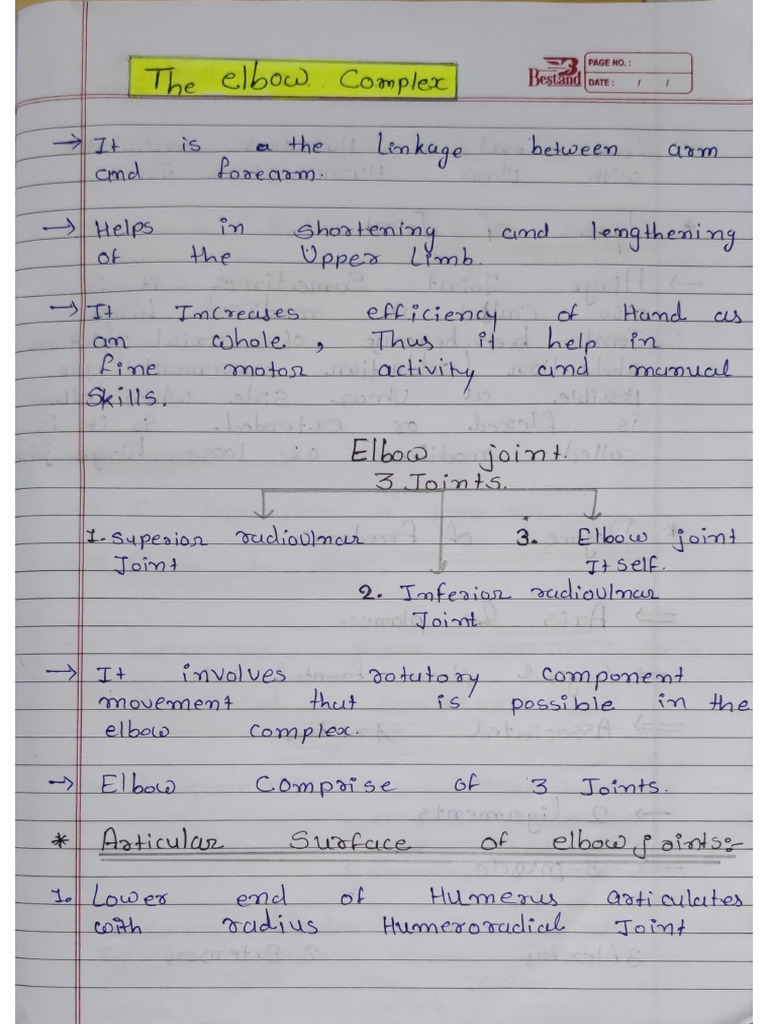 The Elbow Complex
Bestand
PAGE NO. :
DATE : / /
→ It is a the linkage between arm
and forearm.
→ Helps in shortening and lengthening
of the Upper Limb.
→ It Increases efficiency of Hand as
an whole, Thus it help in
fine motor activity and manual
Skills.
Elbow joint.
3 Joints.
1. Superior radioulnar
Joint
3. Elbow joint
It self.
2. Inferior radioulnar
Joint.
→ It involves rotutory component
movement that is possible in the
elbow complex.
→ Elbow Comprise of 3 Joints.
* Articular Surface of elbow joints:-
1. Lower end of Humerus articulates
with radius Humeroradial Joint